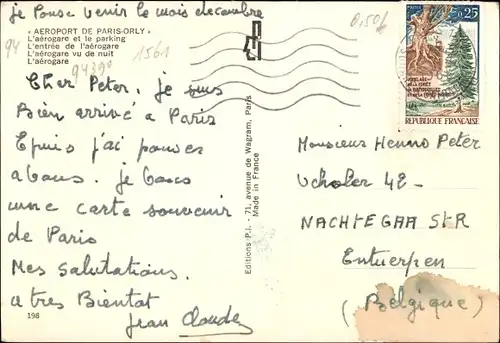 je Pense venir le mois decembre
« AEROPORT DE PARIS-ORLY »
L'aérogare et le parking
L'entrée de l'aérogare
L'aérogare vu de nuit
L'aérogare
94
94390
1561
0,50f
Cher Peter. je suis
Bien arrivé à Paris
Epuis j'ai pouves
avous. je
une carte souvenir
de Paris
Mes Salutations.
a tres Bientot
Jean Claude
198
Editions P.I. - 71, avenue de Wagram, Paris
Made in France
0,25
REPUBLIQUE FRANÇAISE
Monsieur Henno Peter
42 -
NACHTEGAA STR
Entwerpen
(Belgique)